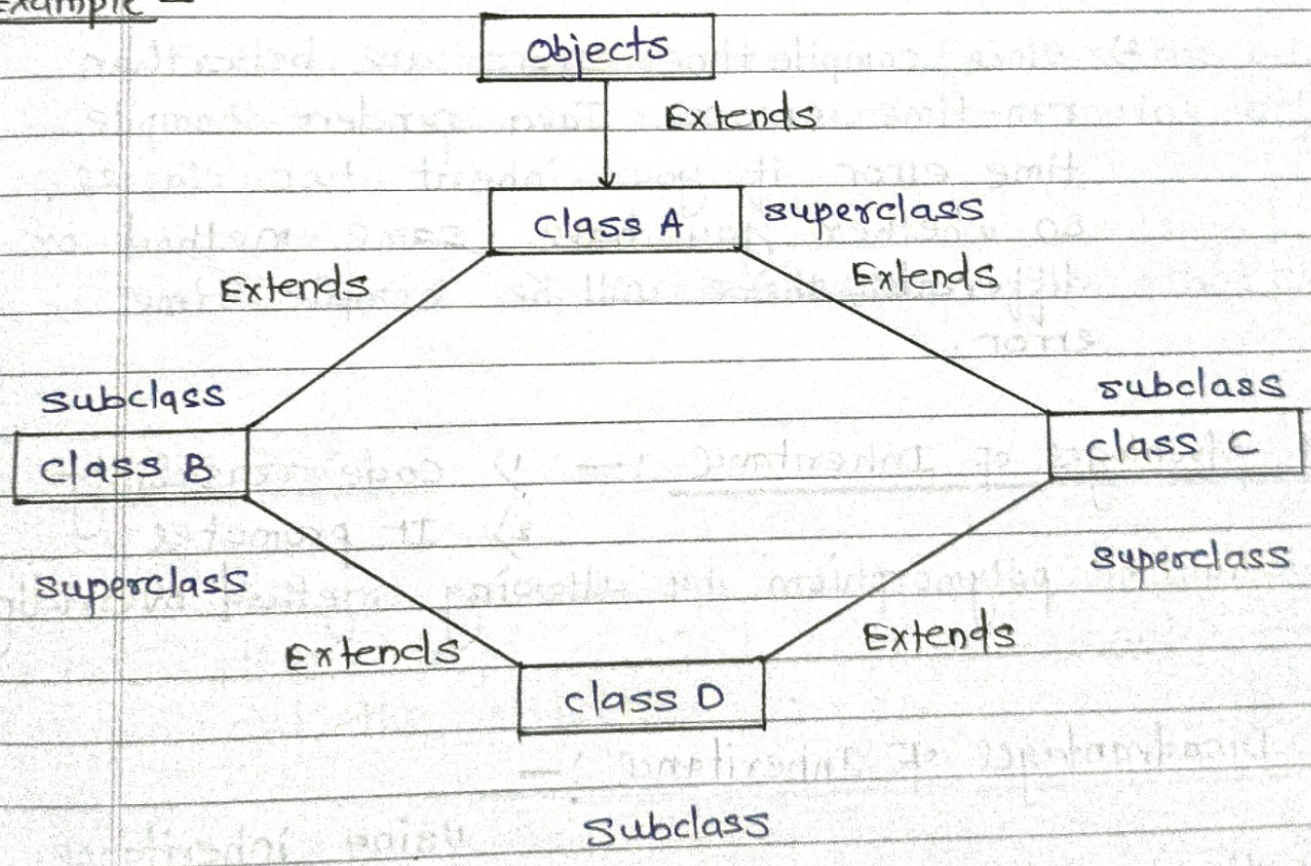 Example -
Objects
Extends
class A superclass
Extends Extends
subclass subclass
class B class C
superclass superclass
Extends Extends
class D
Subclass